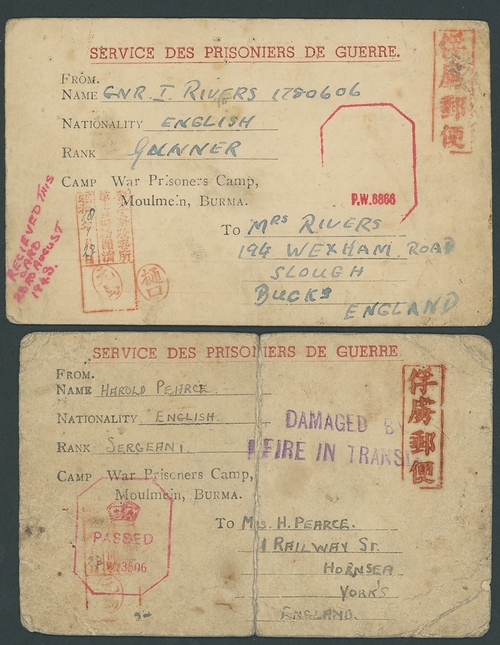 SERVICE DES PRISONIERS DE GUERRE.
俘虜郵便
FROM.
NAME GNR. I. RIVERS 1780606
NATIONALITY ENGLISH
RANK GUNNER
P.W. 8866
CAMP War Prisoners Camp,
Moulmein, BURMA.
RECIEVED THIS
CARD
23RD AUGUST
1943.
樋口
To MRS RIVERS
194 WEXHAM ROAD
SLOUGH
BUCKS
ENGLAND
SERVICE DES PRISONIERS DE GUERRE
俘虜郵便
FROM.
NAME HAROLD PEARCE
NATIONALITY ENGLISH
DAMAGED BY
FIRE IN TRANSI
RANK SERGEANT
CAMP War Prisoners Camp,
Moulmein, BURMA.
PASSED
To MRS. H. PEARCE.
1 RAILWAY ST.
HORNSEA
YORK'S
ENGLAND.